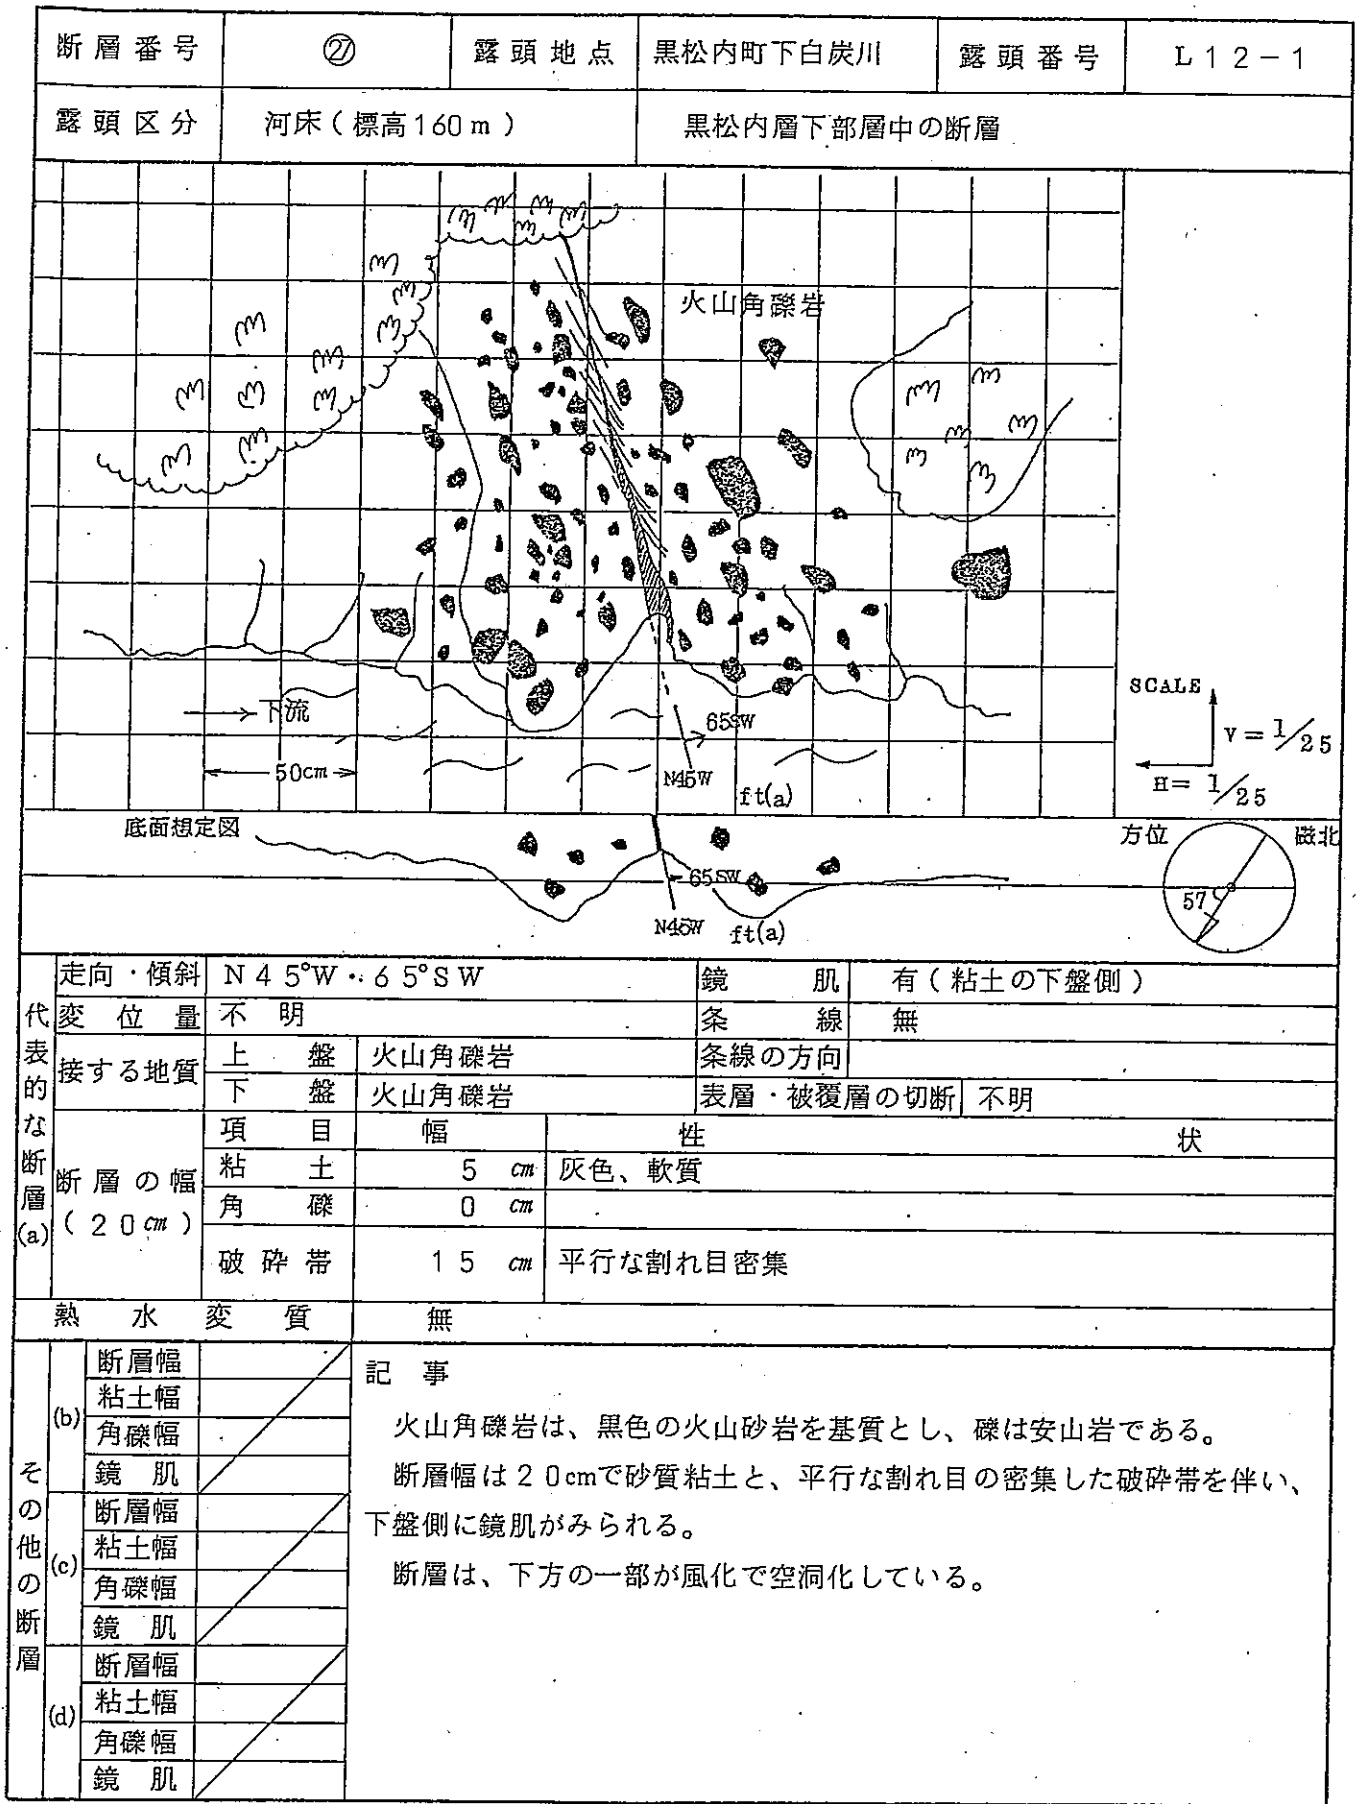 断層番号 ㉗ 露頭地点 黒松内町下白炭川 露頭番号 L12-1
露頭区分 河床(標高160m) 黒松内層下部層中の断層
火山角礫岩
SCALE
V=1/25
H=1/25
下流
50cm
65SW
N45W
ft(a)
底面想定図
方位 磁北
57
65SW
N45W
ft(a)
代表的な断層(a)
走向・傾斜 N45°W・65°SW 鏡肌 有(粘土の下盤側)
変位量 不明 条線 無
接する地質 上盤 火山角礫岩 条線の方向
下盤 火山角礫岩 表層・被覆層の切断 不明
断層の幅(20cm) 項目 幅 性状
粘土 5cm 灰色、軟質
角礫 0cm
破砕帯 15cm 平行な割れ目密集
熱水変質 無
その他の断層
(b) 断層幅
粘土幅
角礫幅
鏡肌
(c) 断層幅
粘土幅
角礫幅
鏡肌
(d) 断層幅
粘土幅
角礫幅
鏡肌
記事
火山角礫岩は、黒色の火山砂岩を基質とし、礫は安山岩である。
断層幅は20cmで砂質粘土と、平行な割れ目の密集した破砕帯を伴い、
下盤側に鏡肌がみられる。
断層は、下方の一部が風化で空洞化している。